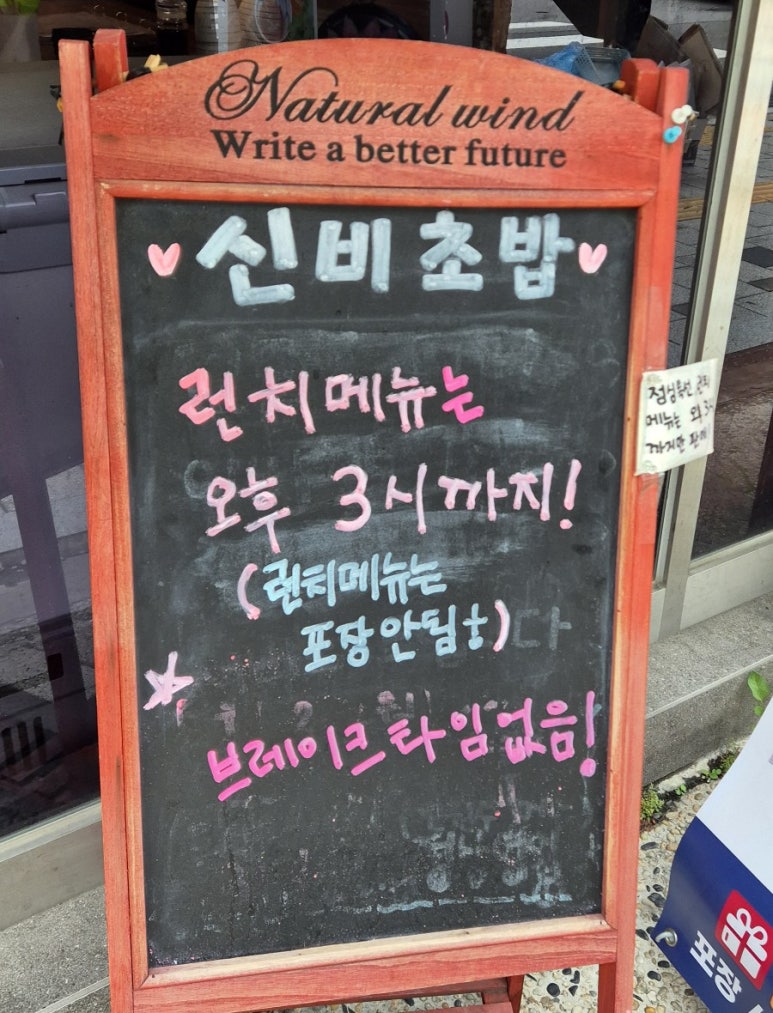 Natural wind
Write a better future
신비초밥
런치메뉴는
오후 3시까지!
(런치메뉴는
포장안됨)
브레이크타임없음!
메뉴는 오후 3시
까지만 판매
포장